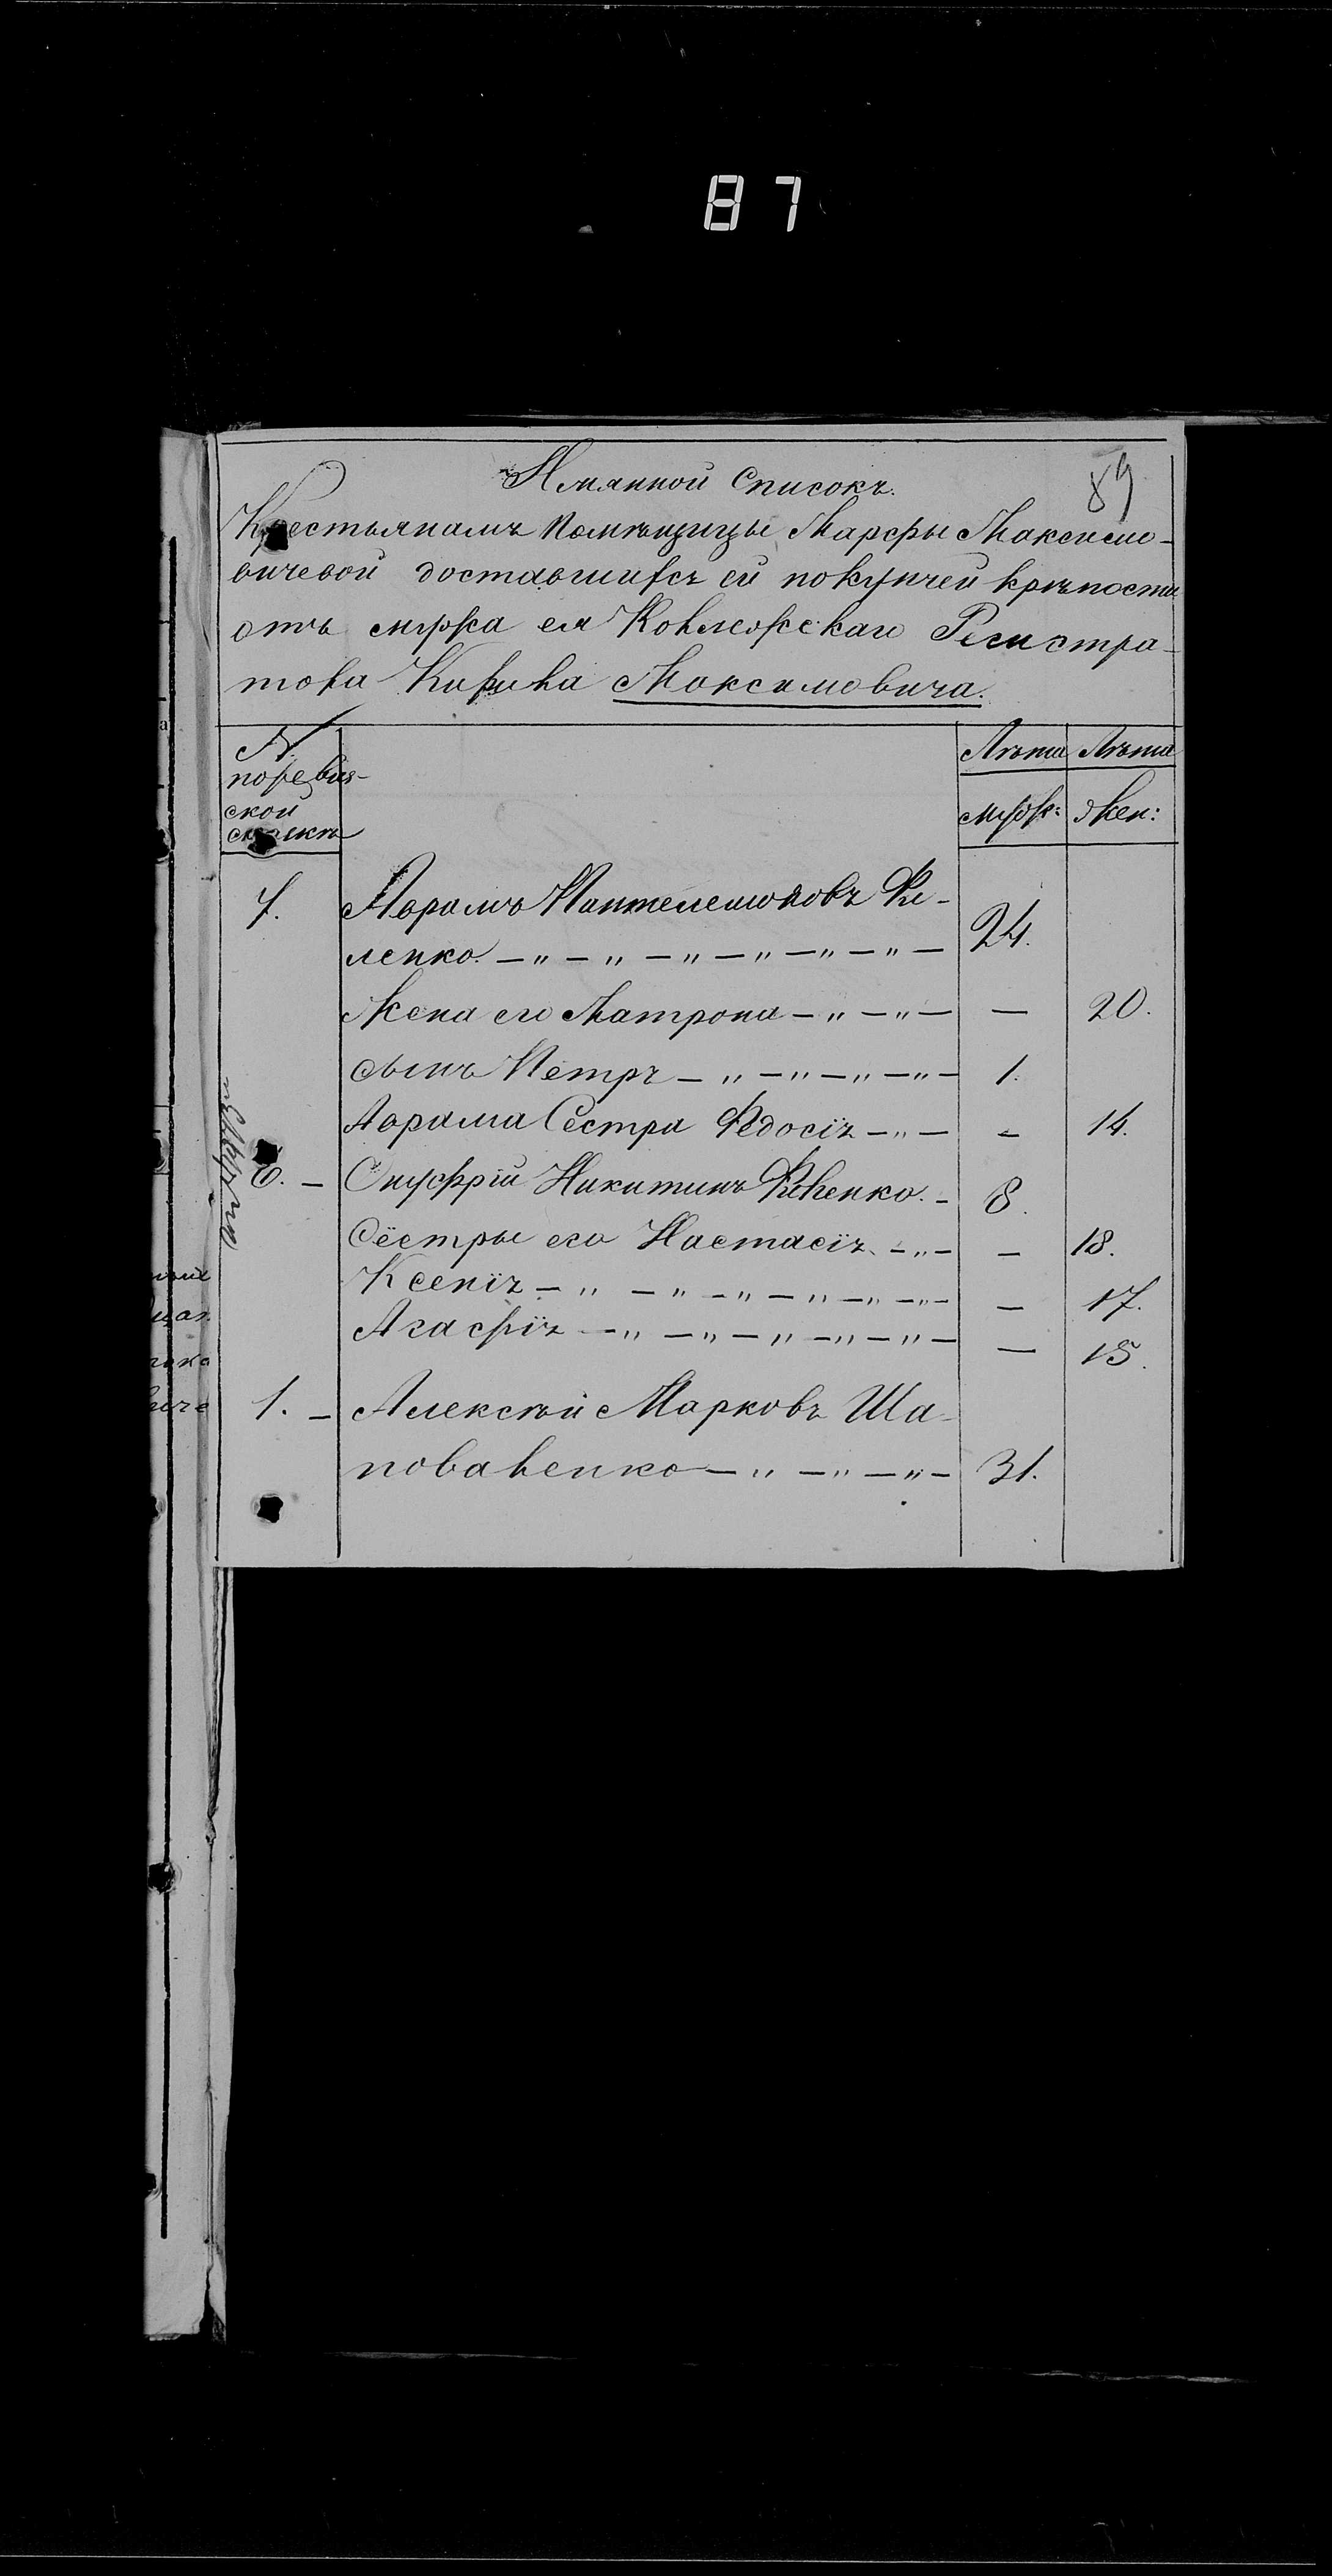 87
89
Имянной Списокъ.
Крестьянамъ помѣщицы Марфы Максимо-
вичевой доставшихся ей покупчей крѣпости
отъ мужа ея Коллежскаго Регистра-
тора Кирила Максимовича.
№ по ревиз-
ской
сказкѣ
Лѣта муж:
Лѣта жен:
7. Аврамъ Пантелеимоновъ
ленко 24.
Жена его Матрона — 20.
сынъ Петръ 1.
Аврама Сестра Федосія — 14.
6. Онуфрій Никитинъ 8.
Сестры его Настасія — 18.
Ксенія — 17.
Агафія — 15.
1. Алексѣй Марковъ Ша-
поваленко 31.